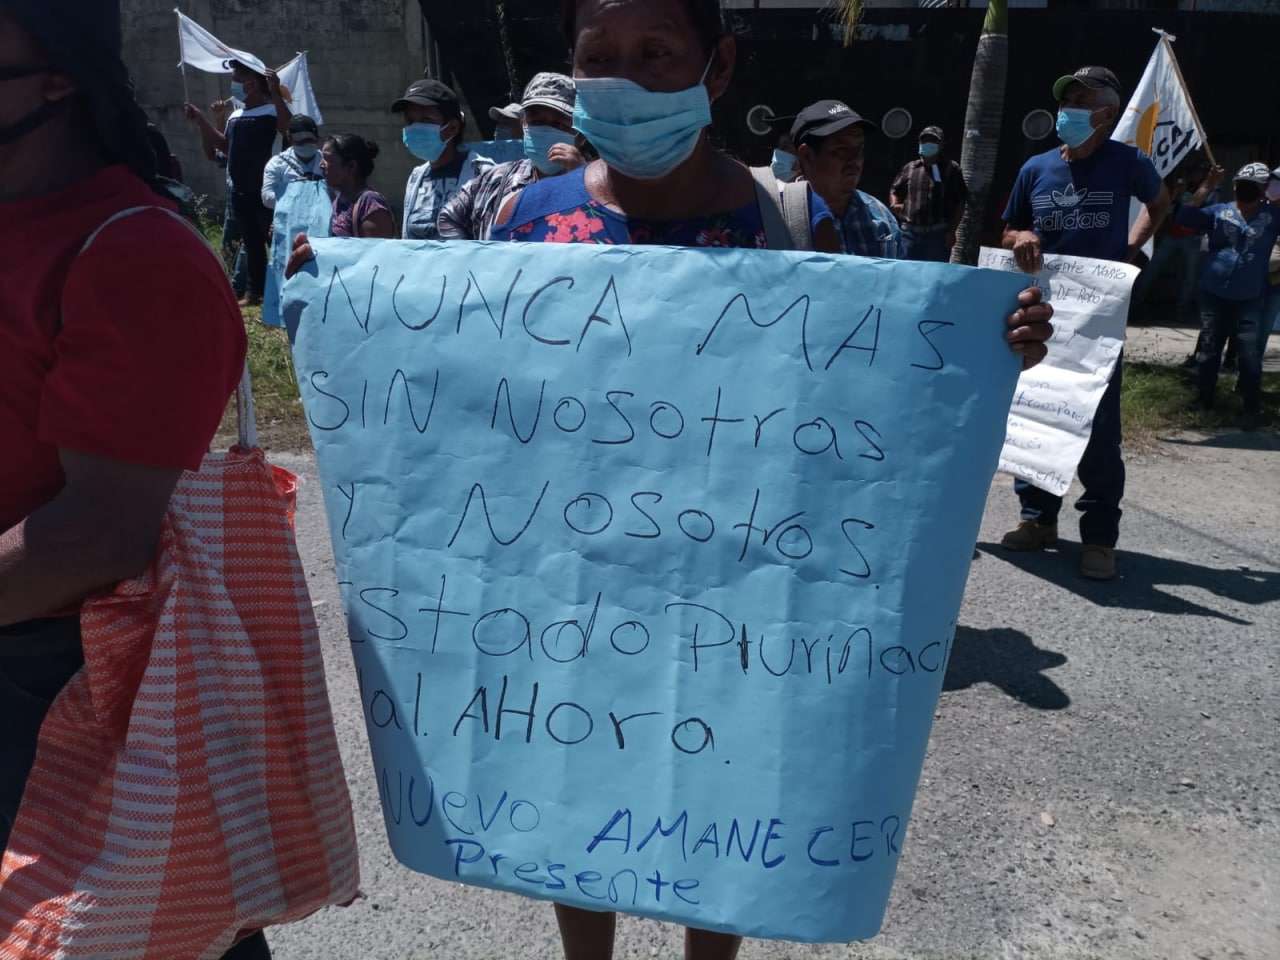 NUNCA MAS
SIN NosotrAs
Y Nosotros.
Estado Plurinaci
Nal. AHora.
NUevo AMANECER
Presente
adidas
cente
DE Robo
un